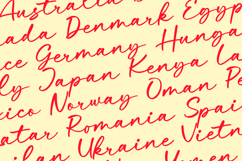 Australia
Denmark Egyp
ce Germany Hunga
Japan Kenya La
xico Norway Oman Pe
atar Romania Spai
Ukraine Vietn
Yemen